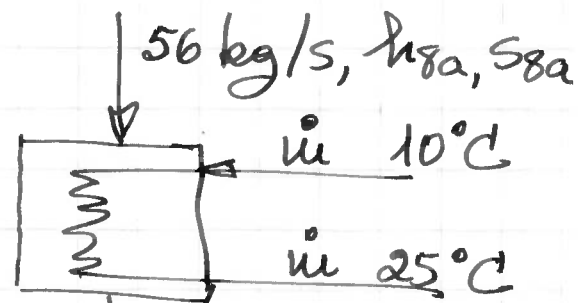 56 kg/s, h8a, s8a
ṁ 10°C
ṁ 25°C